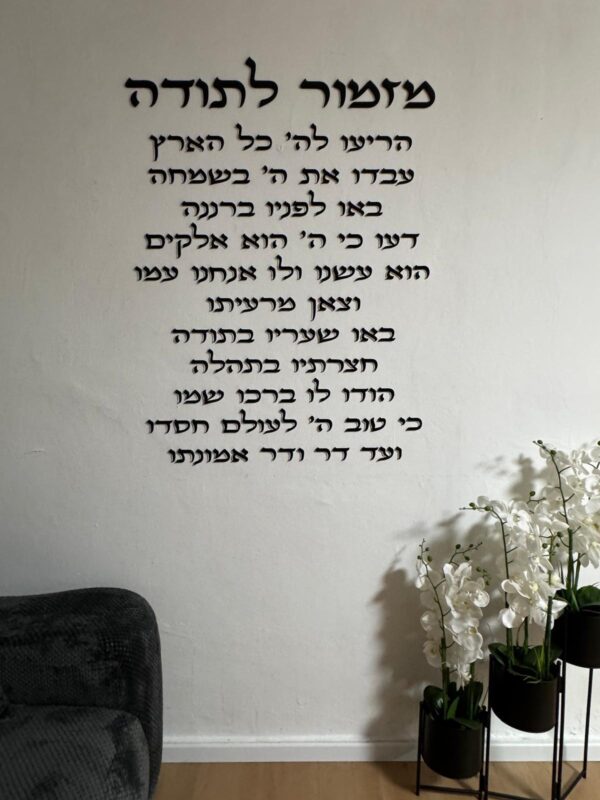 מזמור לתודה
הריעו לה' כל הארץ
עבדו את ה' בשמחה
באו לפניו ברננה
דעו כי ה' הוא אלקים
הוא עשנו ולו אנחנו עמו
וצאן מרעיתו
באו שעריו בתודה
חצרתיו בתהלה
הודו לו ברכו שמו
כי טוב ה' לעולם חסדו
ועד דר ודר אמונתו